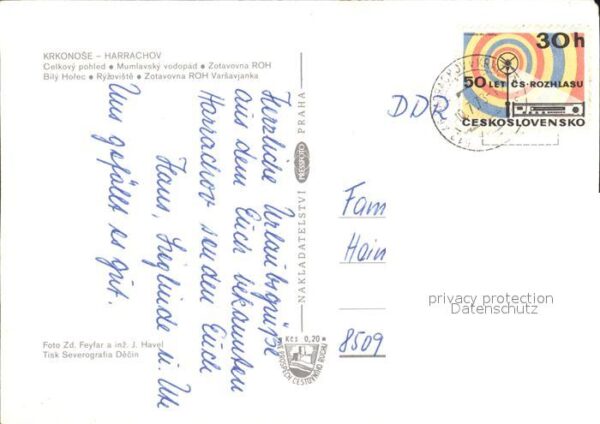 KRKONOŠE – HARRACHOV
Celkový pohled • Mumlavský vodopád • Zotavovna ROH
Bílý Hořec • Rýžoviště • Zotavovna ROH Varšavjanka
Herzliche Urlaubsgrüße
aus dem Euch bekannten
Harrachov senden Euch
Hans, Sieglinde u. Ute
Uns gefällt es gut.
Foto Zd. Feyfar a inž. J. Havel
Tisk Severografia Děčín
NAKLADATELSTVÍ PRESSFOTO PRAHA
Kčs 0,20
VE PROSPĚCH CESTOVNÍHO RUCHU
30 h
50 LET ČS. ROZHLASU
ČESKOSLOVENSKO
DDR
Fam
Hain
8509
privacy protection
Datenschutz